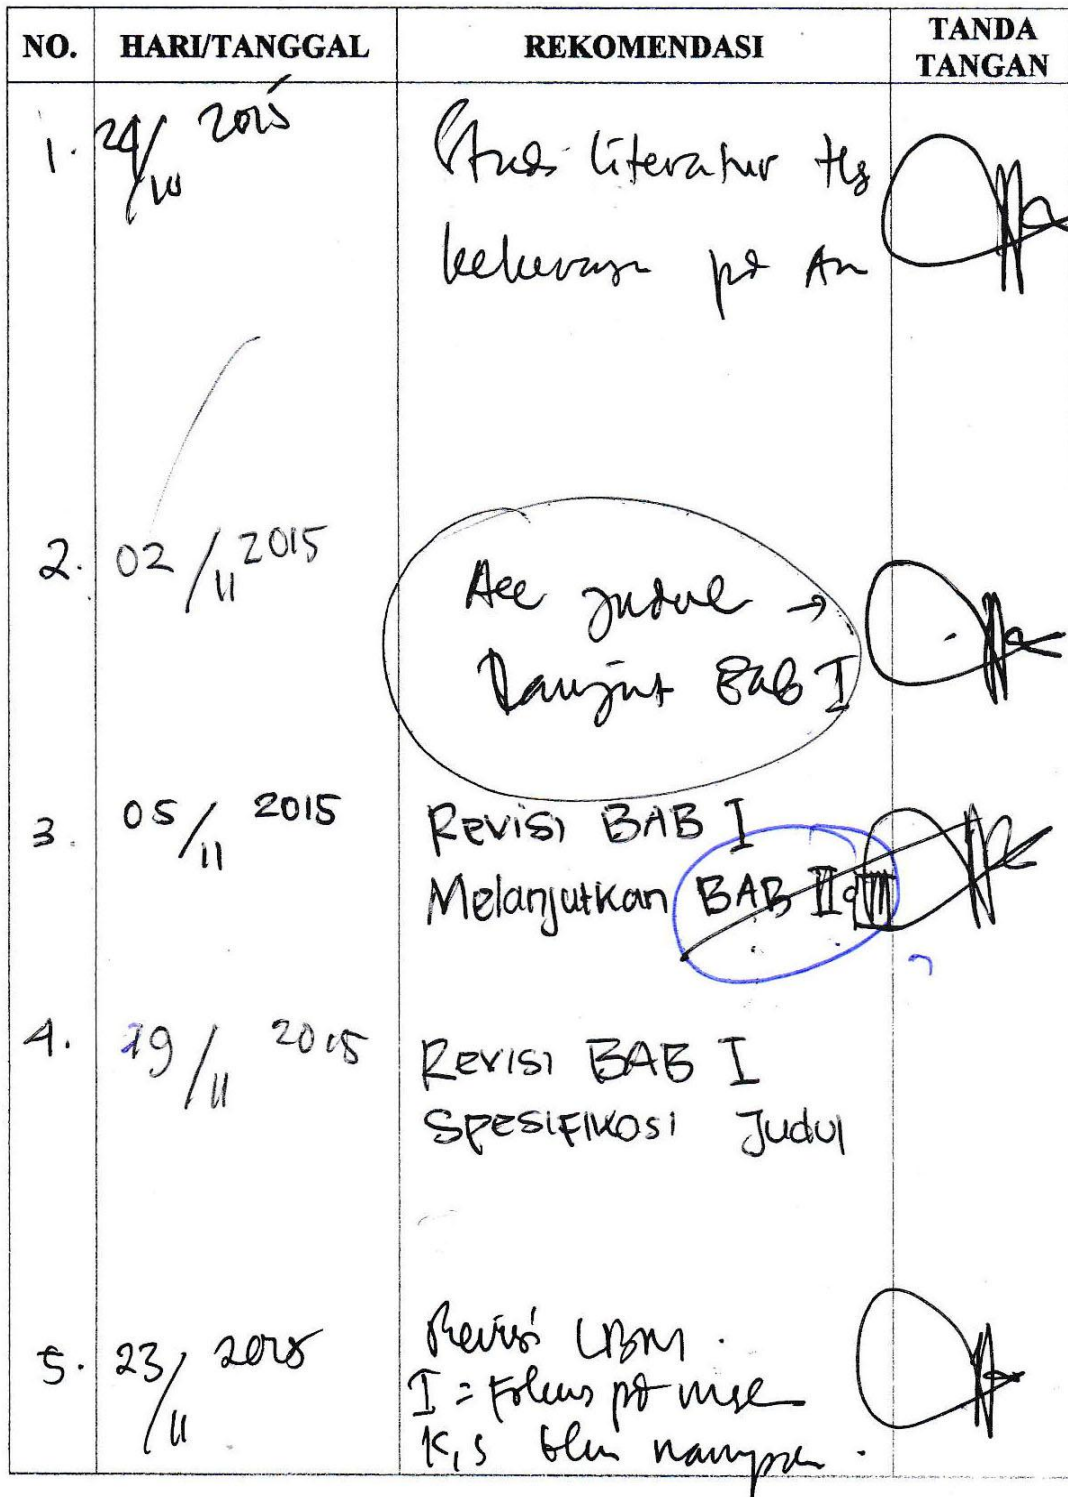 NO. HARI/TANGGAL REKOMENDASI TANDA TANGAN
1. 24/10 2015 Studi literatur ttg
kekerasan pd An
2. 02/11 2015 Acc judul →
Lanjut BAB I
3. 05/11 2015 Revisi BAB I
Melanjutkan BAB II
4. 19/11 2015 Revisi BAB I
Spesifikasi Judul
5. 23/11 2015 Revisi LBM.
I = Fokus pd mslh
K, S blm nampak.